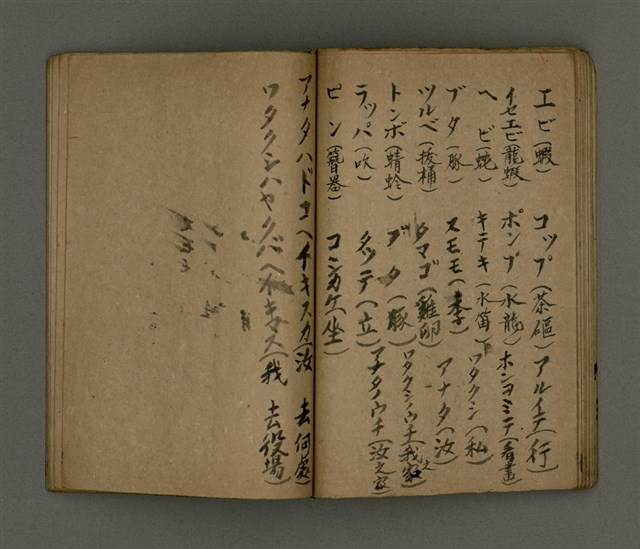 エビ(蝦) コップ(茶碪) アルイテ(行)
イセエビ(龍蝦) ポンプ(水龍) ホンヨミテ(看書)
ヘビ(蛇) キテキ(水笛) ワタクシ(私)
ブタ(豚) スモモ(李) アナタ(汝)
ツルベ(拔桶) タマゴ(雞卵) ワタクシノウチ(我之家)
トンボ(蜻蛉) ブタ(豚) アナタノウチ(汝之家)
ラッパ(吹) タッテ(立)
ビン(簪番) コシカケ(坐)
アナタハドコヘイキスカ(汝 去何處)
ワタクシハヤクバヘイキマス(我 去役場)